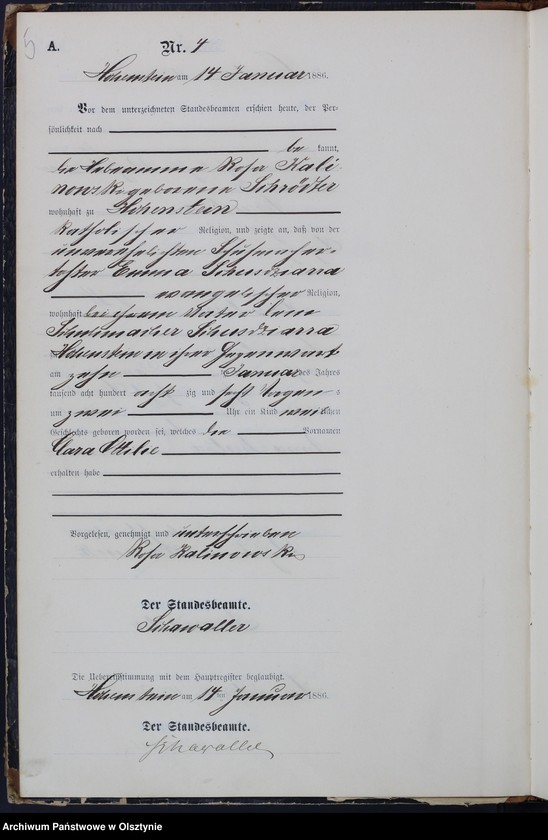 5
A. Nr. 4
Hohenstein am 14 Januar 1886.
Vor dem unterzeichneten Standesbeamten erschien heute, der Per-
sönlichkeit nach
be kannt,
die Hebeamme Rosa Kali-
nowski geborene Schröðter
wohnhaft zu Hohenstein
katholischer Religion, und zeigte an, daß von der
unverehelichten Schuhmacher-
tochter Emma
evangelischer Religion,
wohnhaft bei ihrem Vater dem
Schuhmacher
Hohenstein in ihrer Gegenwart
am zehn Januar des Jahres
tausend acht hundert acht zig und sechs
um zwei Uhr ein Kind weiblichen
Geschlechts geboren worden sei, welches die Vornamen
Clara Ottilie
erhalten habe
Vorgelesen, genehmigt und unterschrieben
Rosa Kalinowski
Der Standesbeamte.
Schawaller
Die Uebereinstimmung mit dem Hauptregister beglaubigt.
Hohenstein am 14 ten Januar 1886.
Der Standesbeamte.
Schawaller
Archiwum Państwowe w Olsztynie